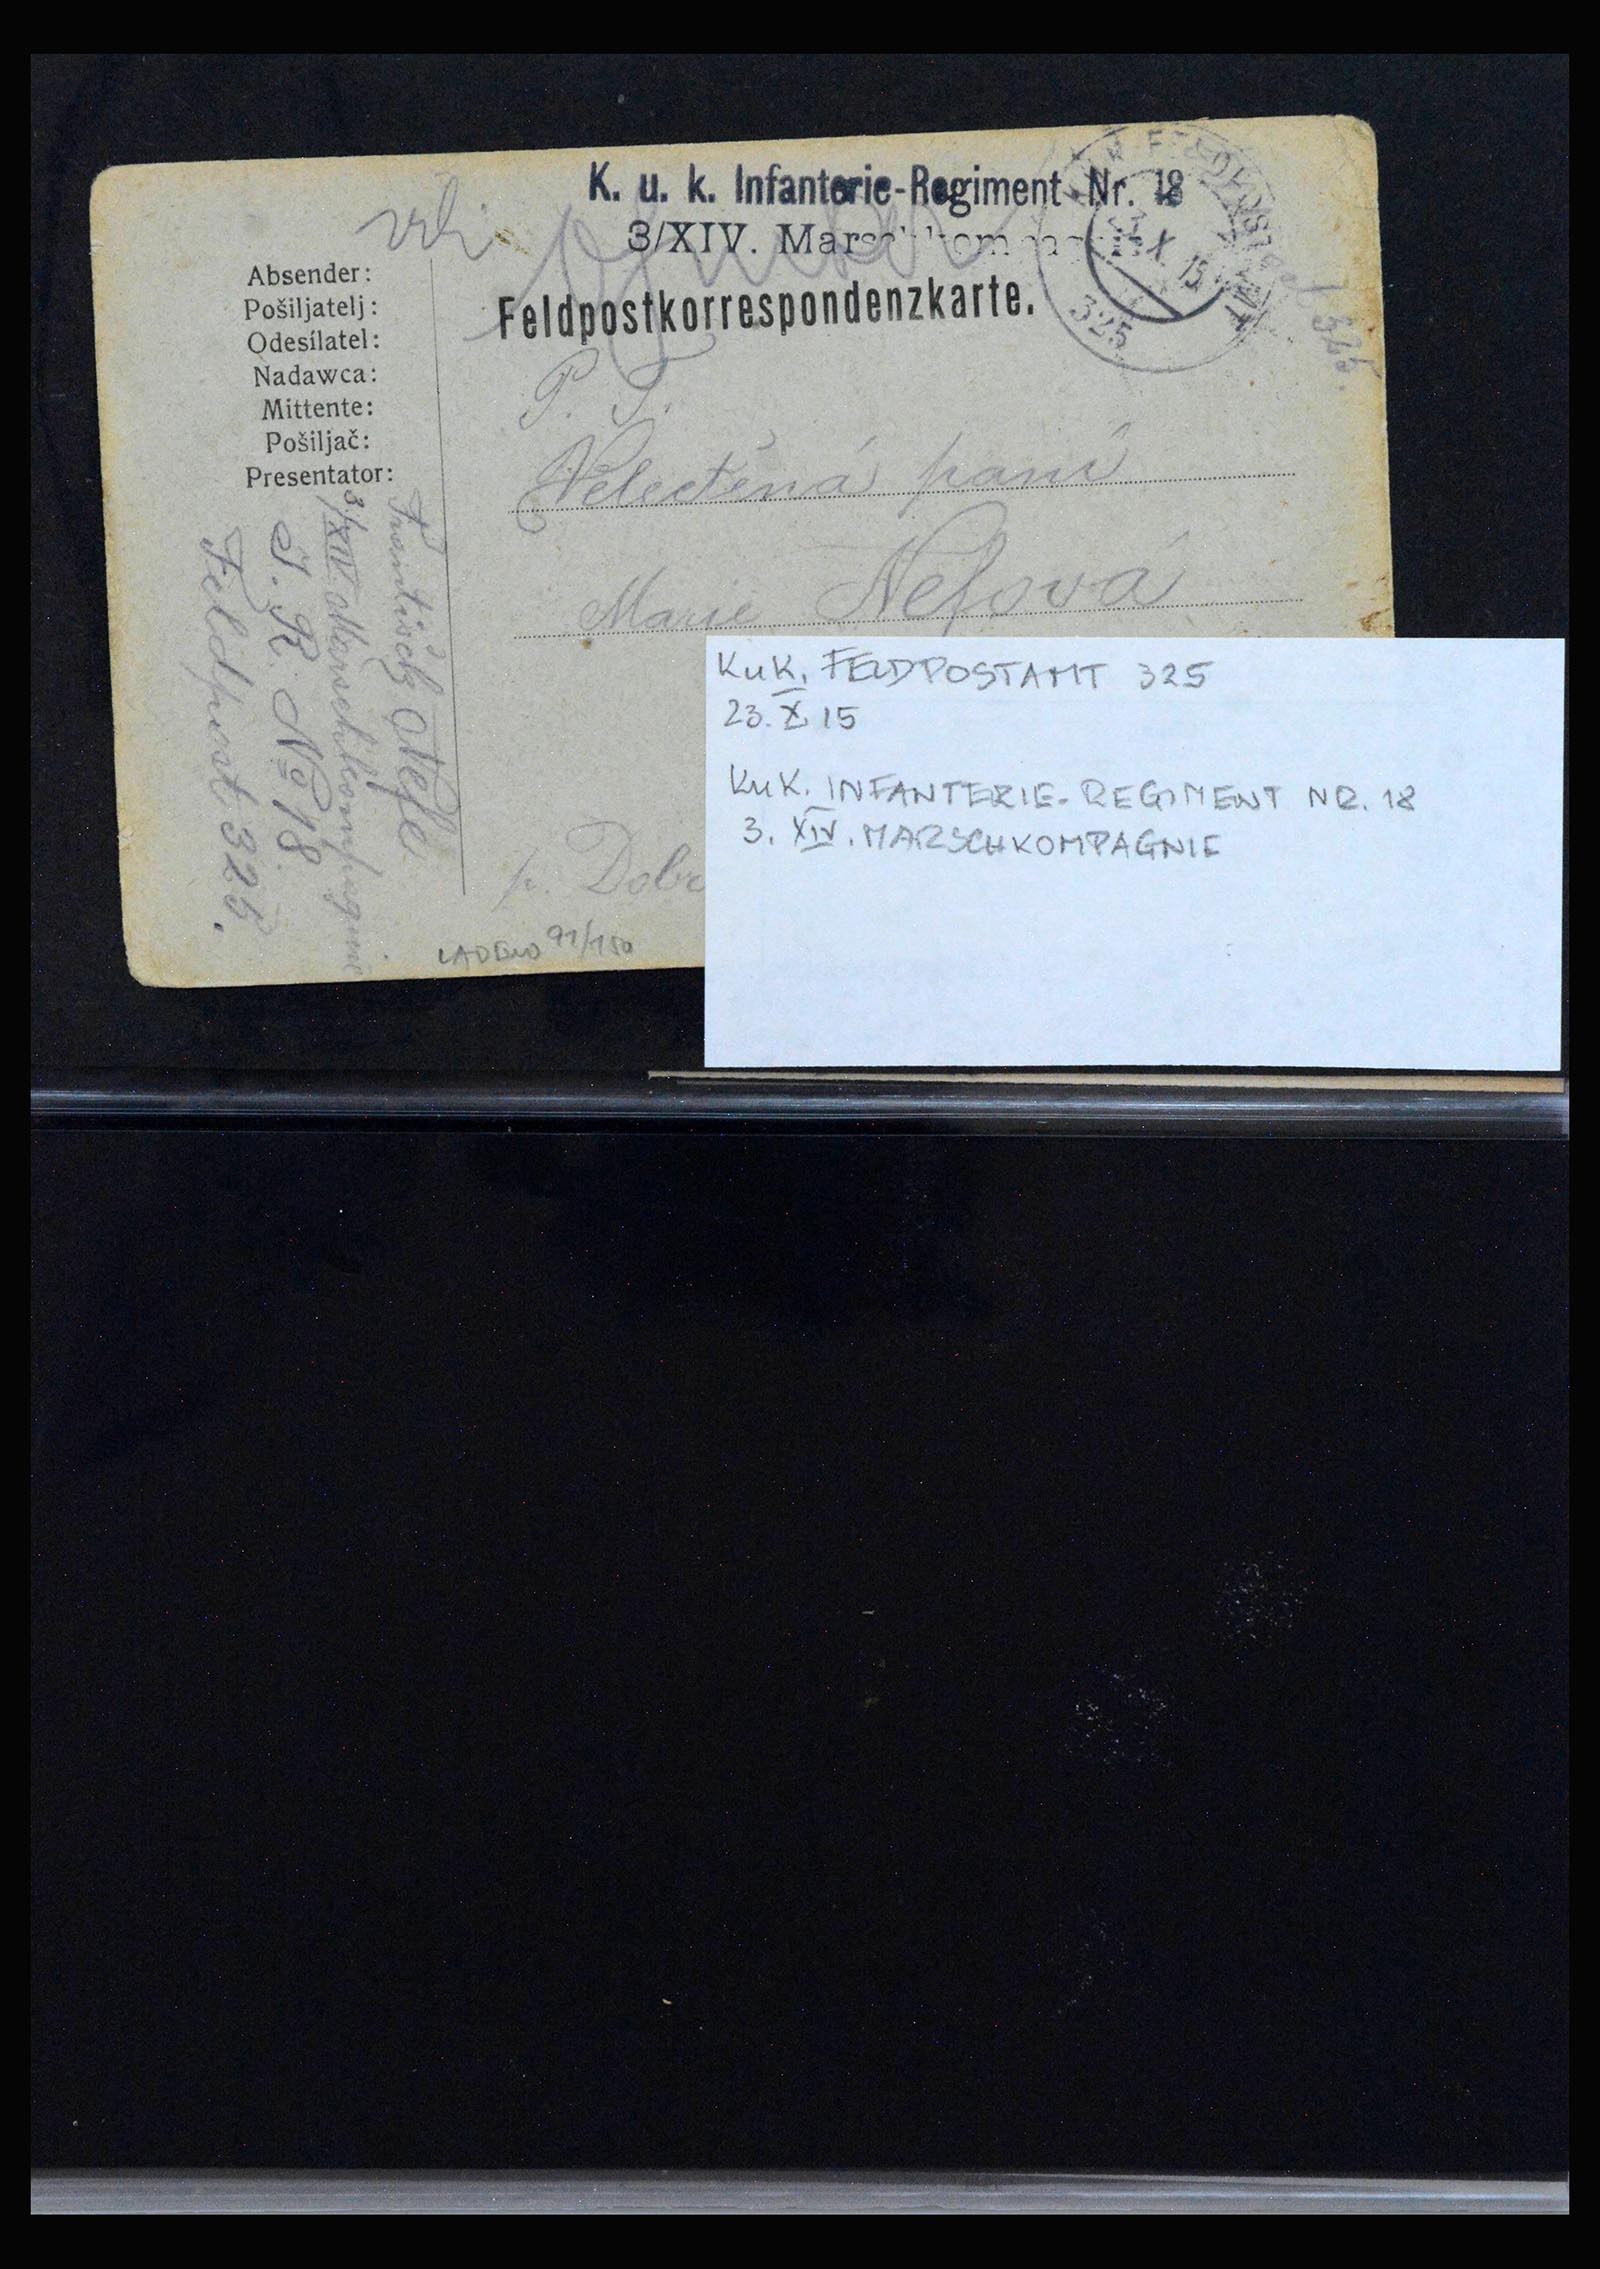 K. u. k. Infanterie-Regiment Nr. 18
3/XIV.
Feldpostkorrespondenzkarte.
325
X 15
325.
Absender:
Pošiljatelj:
Odesílatel:
Nadawca:
Mittente:
Pošiljač:
Presentator:
František Nefe
3/XIV. Marschkompagnie
I. R. No 18.
Feldpost 325.
P. T.
Velectěná paní
Marie Nefová
p. Dobr
91/150
KuK. FELDPOSTAMT 325
23. X 15
KuK. INFANTERIE-REGIMENT NR. 18
3. XIV. MARSCHKOMPAGNIE